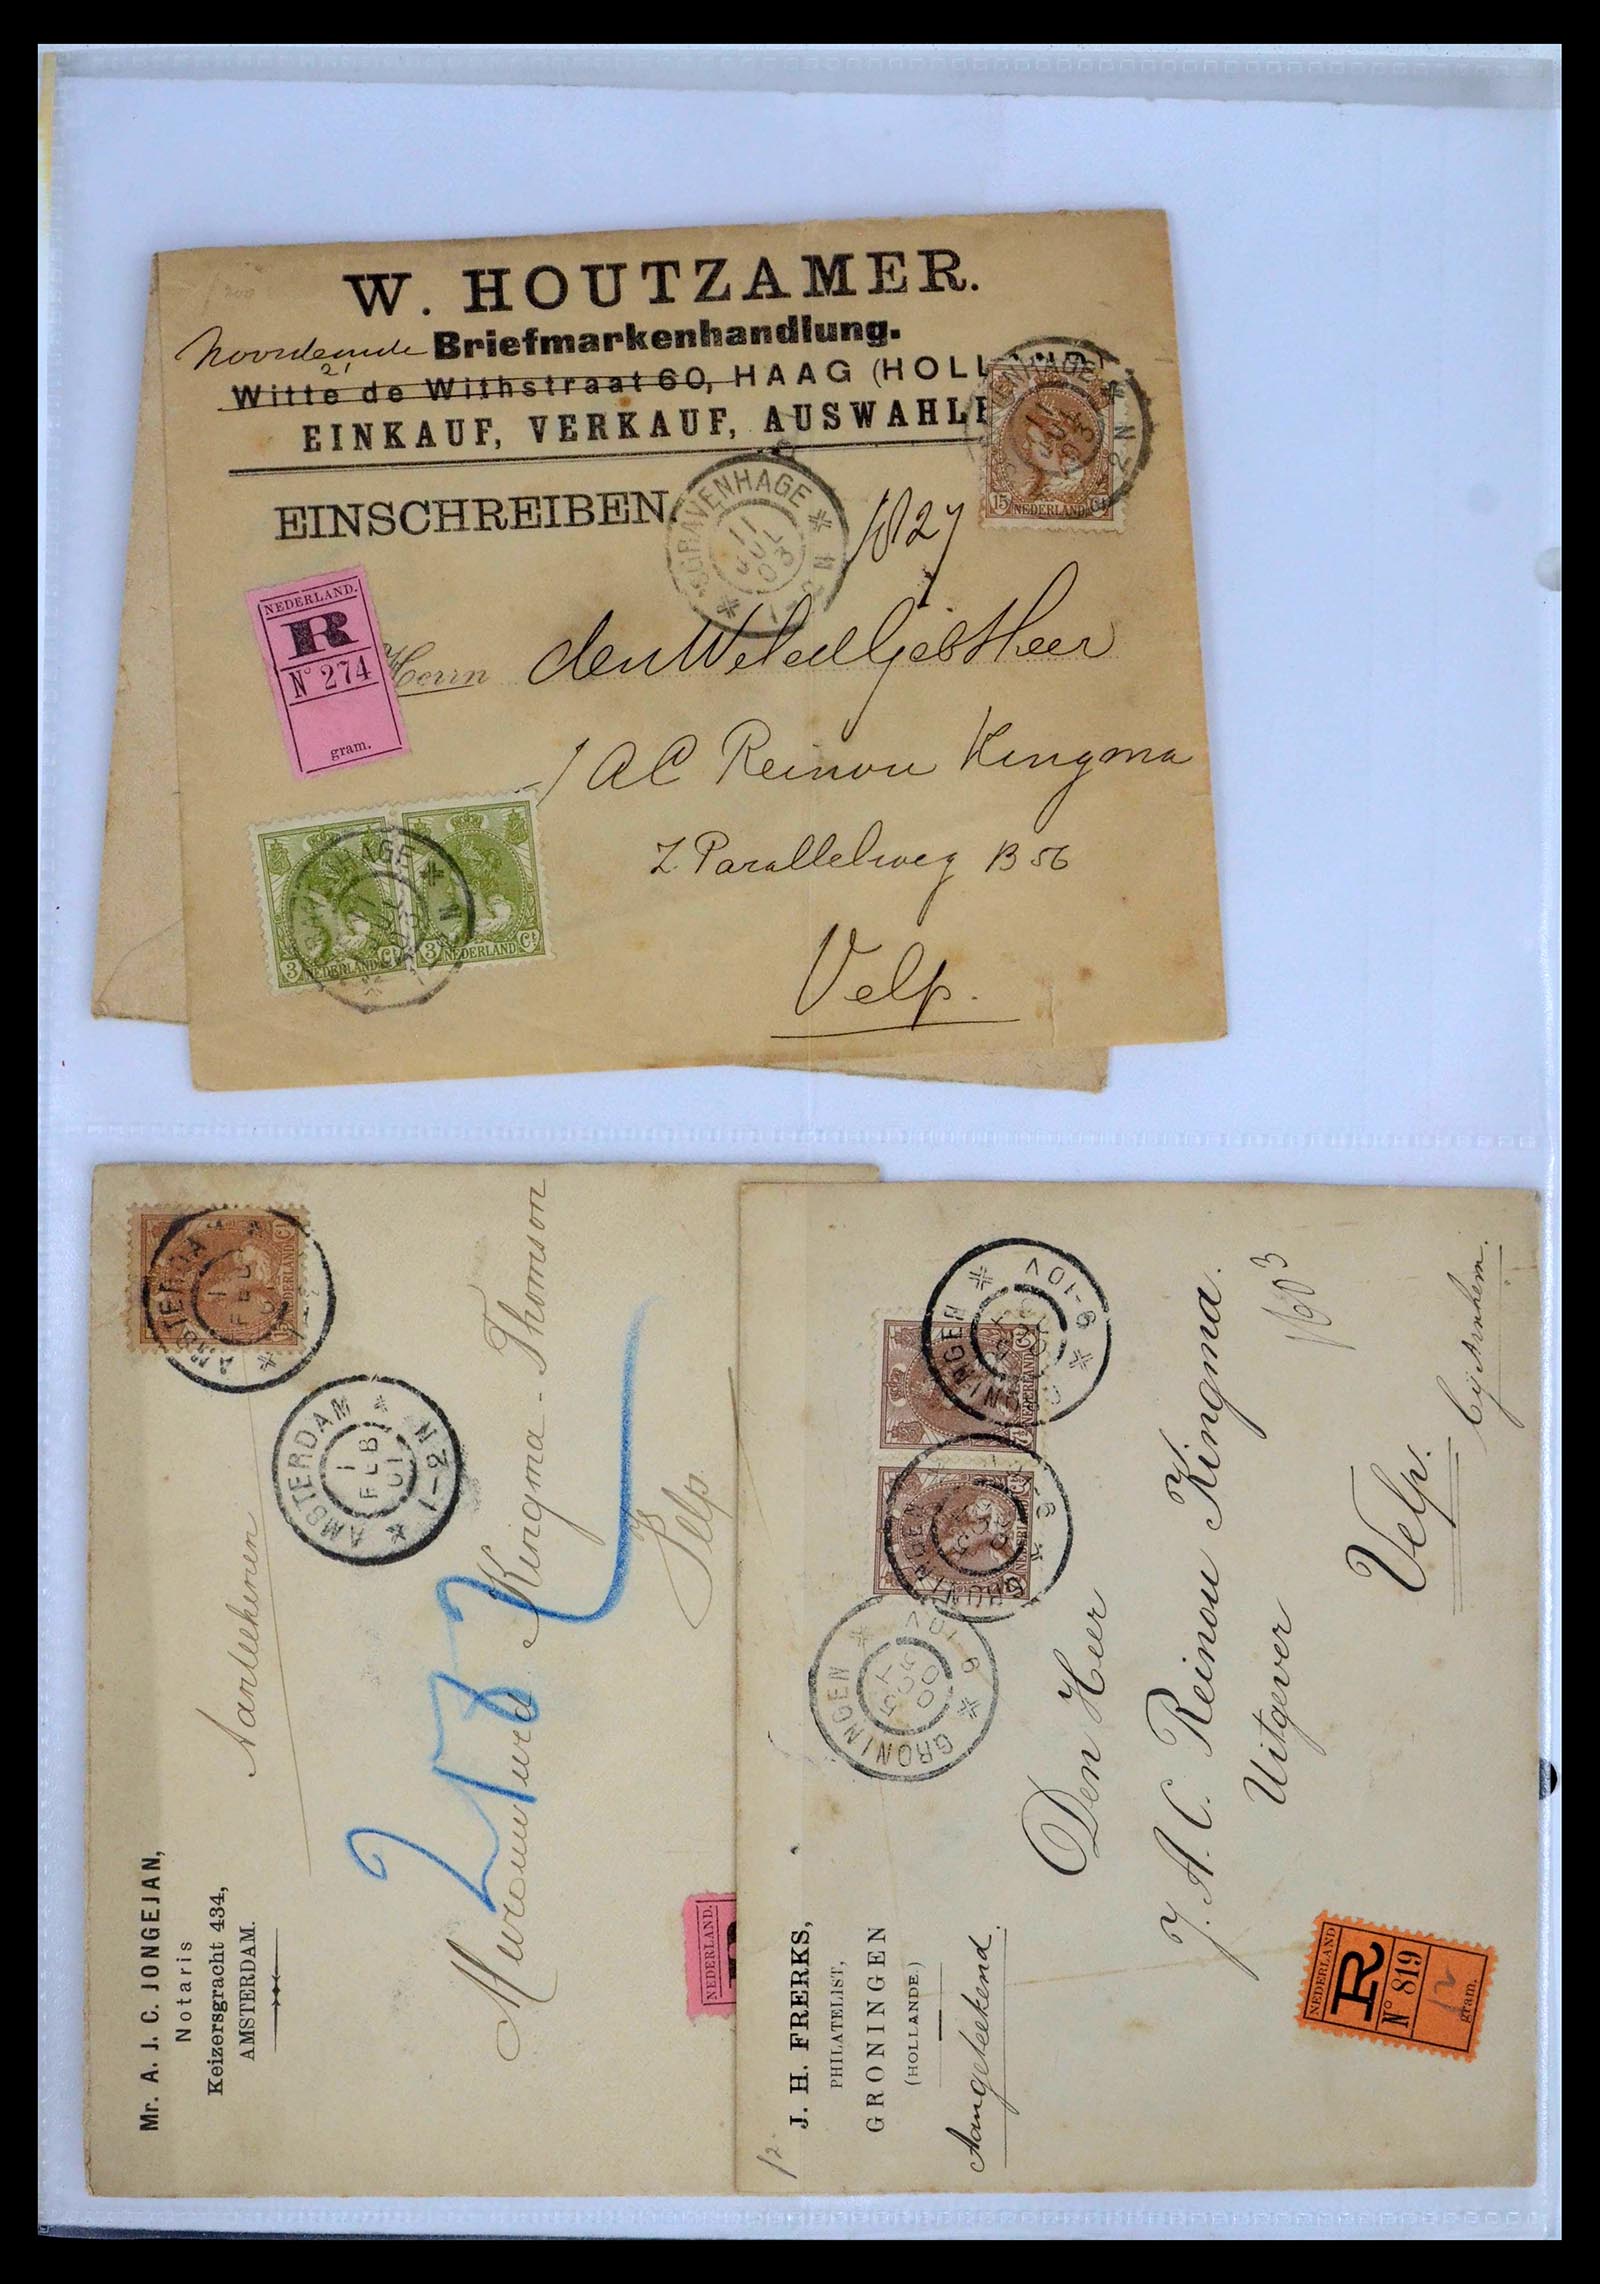 W. HOUTZAMER.
Noordeinde Briefmarkenhandlung.
21
Witte de Withstraat 60, HAAG (HOLL
EINKAUF, VERKAUF, AUSWAHL
EINSCHREIBEN.
'SGRAVENHAGE
11
JUL
03
1-2 N
15 NEDERLAND Ct
NEDERLAND.
R
N° 274
gram.
Herrn den WelEdlGeb Heer
J A C Reinou Kingma
Z. Parallelweg B 56
Velp.
3 NEDERLAND Ct
3 NEDERLAND Ct
Mr. A. J. C. JONGEJAN,
Notaris
Keizersgracht 434,
AMSTERDAM.
Aanteekenen
AMSTERDAM
1 FEB 01
AMSTERDAM
1 FEB 01
1-2 N
15 NEDERLAND Ct
Mevrouw
Kingma-Thomson
Velp.
NEDERLAND.
J. H. FRERKS,
PHILATELIST,
GRONINGEN
(HOLLANDE.)
Aangeteekend.
GRONINGEN
GRONINGEN
9-10V
GRONINGEN
NEDERLAND
NEDERLAND
Den Heer
J. A. C. Reinou Kingma.
Uitgever
Velp.
bij Arnhem.
NEDERLAND
R
N° 819
12
gram.